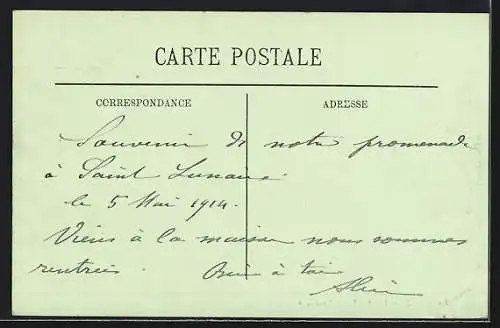 CARTE POSTALE
CORRESPONDANCE
ADRESSE
Souvenir de notre promenade
à Saint Lunaire
le 5 Mai 1914.
à la maison nous sommes
rentrées. à toi